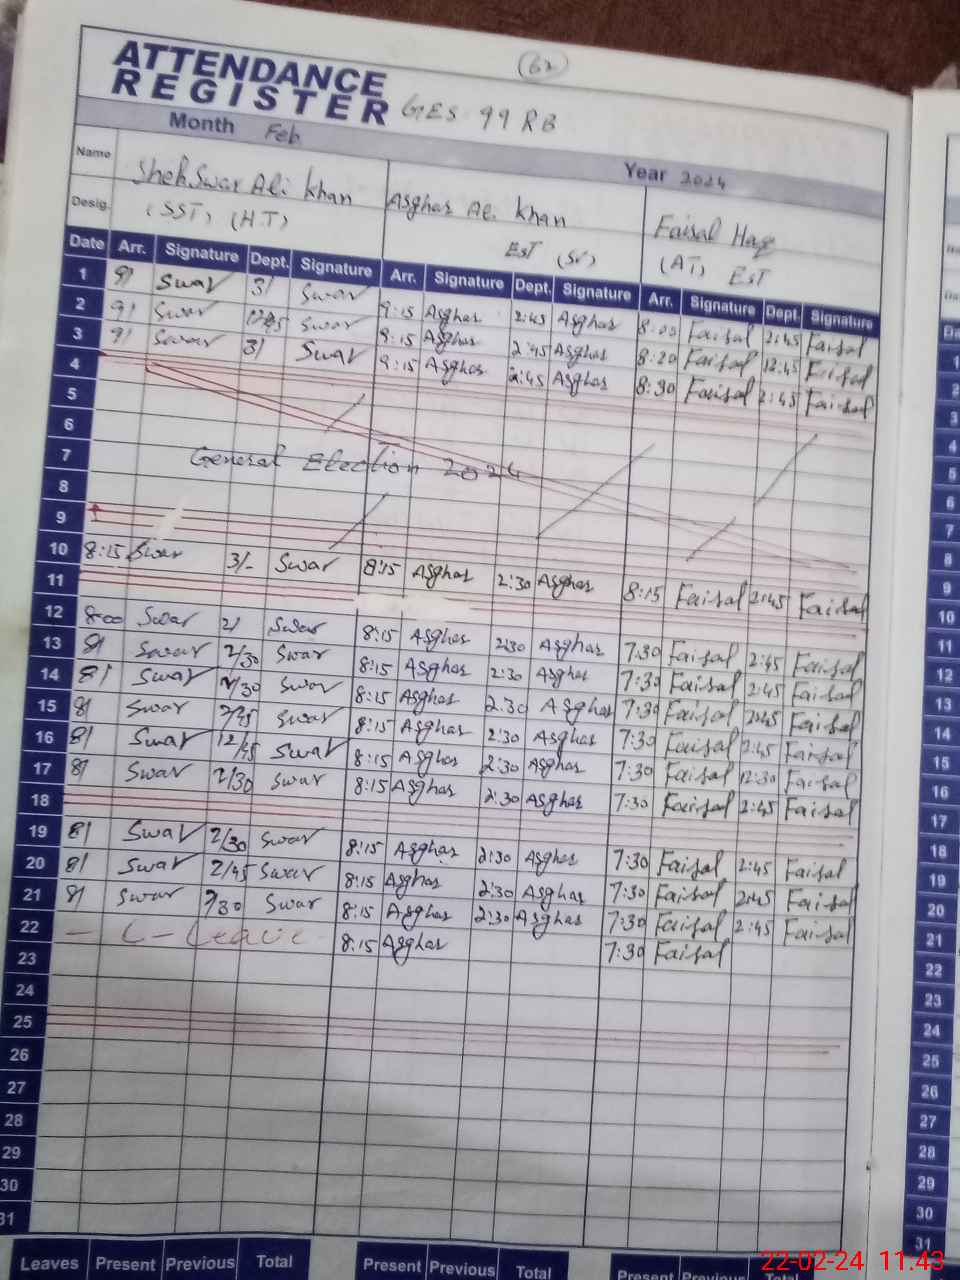 62
ATTENDANCE
REGISTER GES 99 RB
Month Feb Year 2024
Name Sheh Swar Ali Khan Asghar Ali Khan Faisal Haq
Desig. (SST) (H.T) EST (Sr) (AT) EST
Date Arr. Signature Dept. Signature Arr. Signature Dept. Signature Arr. Signature Dept. Signature
1 9/ Swar 3/ Swar 9:15 Asghar 2:45 Asghar 8:00 Faisal 2:45 Faisal
2 9/ Swar Swar 9:15 Asghar 2:45 Asghar 8:20 Faisal 12:45 Faisal
3 9/ Swar 3/ Swar 9:15 Asghar 2:45 Asghar 8:30 Faisal 2:45 Faisal
4
5
6
7 General Election 2024
8
9
10 8:15 Swar 3/- Swar 8:15 Asghar 2:30 Asghar 8:15 Faisal 2:45 Faisal
11
12 8:00 Swar 2/ Swar 8:15 Asghar 2:30 Asghar 7:30 Faisal 2:45 Faisal
13 8/ Swar 2/30 Swar 8:15 Asghar 2:30 Asghar 7:30 Faisal 2:45 Faisal
14 8/ Swar 2/30 Swar 8:15 Asghar 2:30 Asghar 7:30 Faisal 2:45 Faisal
15 8/ Swar 2/45 Swar 8:15 Asghar 2:30 Asghar 7:30 Faisal 2:45 Faisal
16 8/ Swar 12/45 Swar 8:15 Asghar 2:30 Asghar 7:30 Faisal 12:30 Faisal
17 8/ Swar 2/30 Swar 8:15 Asghar 2:30 Asghar 7:30 Faisal 2:45 Faisal
18
19 8/ Swar 2/30 Swar 8:15 Asghar 2:30 Asghar 7:30 Faisal 2:45 Faisal
20 8/ Swar 2/45 Swar 8:15 Asghar 2:30 Asghar 7:30 Faisal 2:45 Faisal
21 8/ Swar 2/30 Swar 8:15 Asghar 2:30 Asghar 7:30 Faisal 2:45 Faisal
22 - C - Leave 8:15 Asghar 7:30 Faisal
23
24
25
26
27
28
29
30
31
Leaves Present Previous Total Present Previous Total Present Previous Total
1
2
3
4
5
6
7
8
9
10
11
12
13
14
15
16
17
18
19
20
21
22
23
24
25
26
27
28
29
30
31
22-02-24 11:43